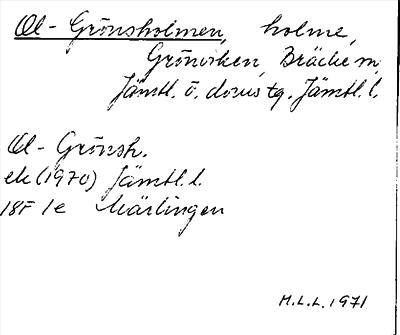 Öl-Grönsholmen, holme,
Grönviken, Bräcke m,
Jämtl. ö. doms tg. Jämtl. l.
Öl-Grönsh.
ek (1970) Jämtl. l.
18F 1e Märlingen
M.L.L. 1971